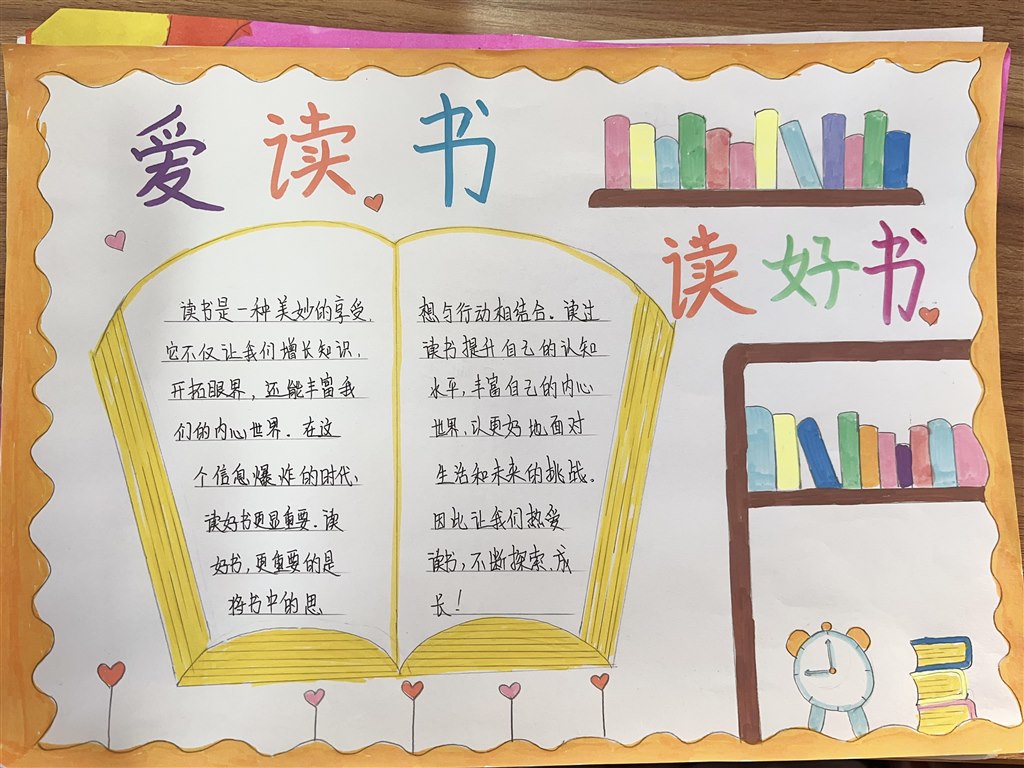 爱读书
读好书
读书是一种美妙的享受,
它不仅让我们增长知识,
开拓眼界,还能丰富我
们的内心世界。在这
个信息爆炸的时代,
读好书更显重要。读
好书,更重要的是
将书中的思
想与行动相结合。读过
读书提升自己的认知
水平,丰富自己的内心
世界,以更好地面对
生活和未来的挑战。
因此让我们热爱
读书,不断探索、成
长!